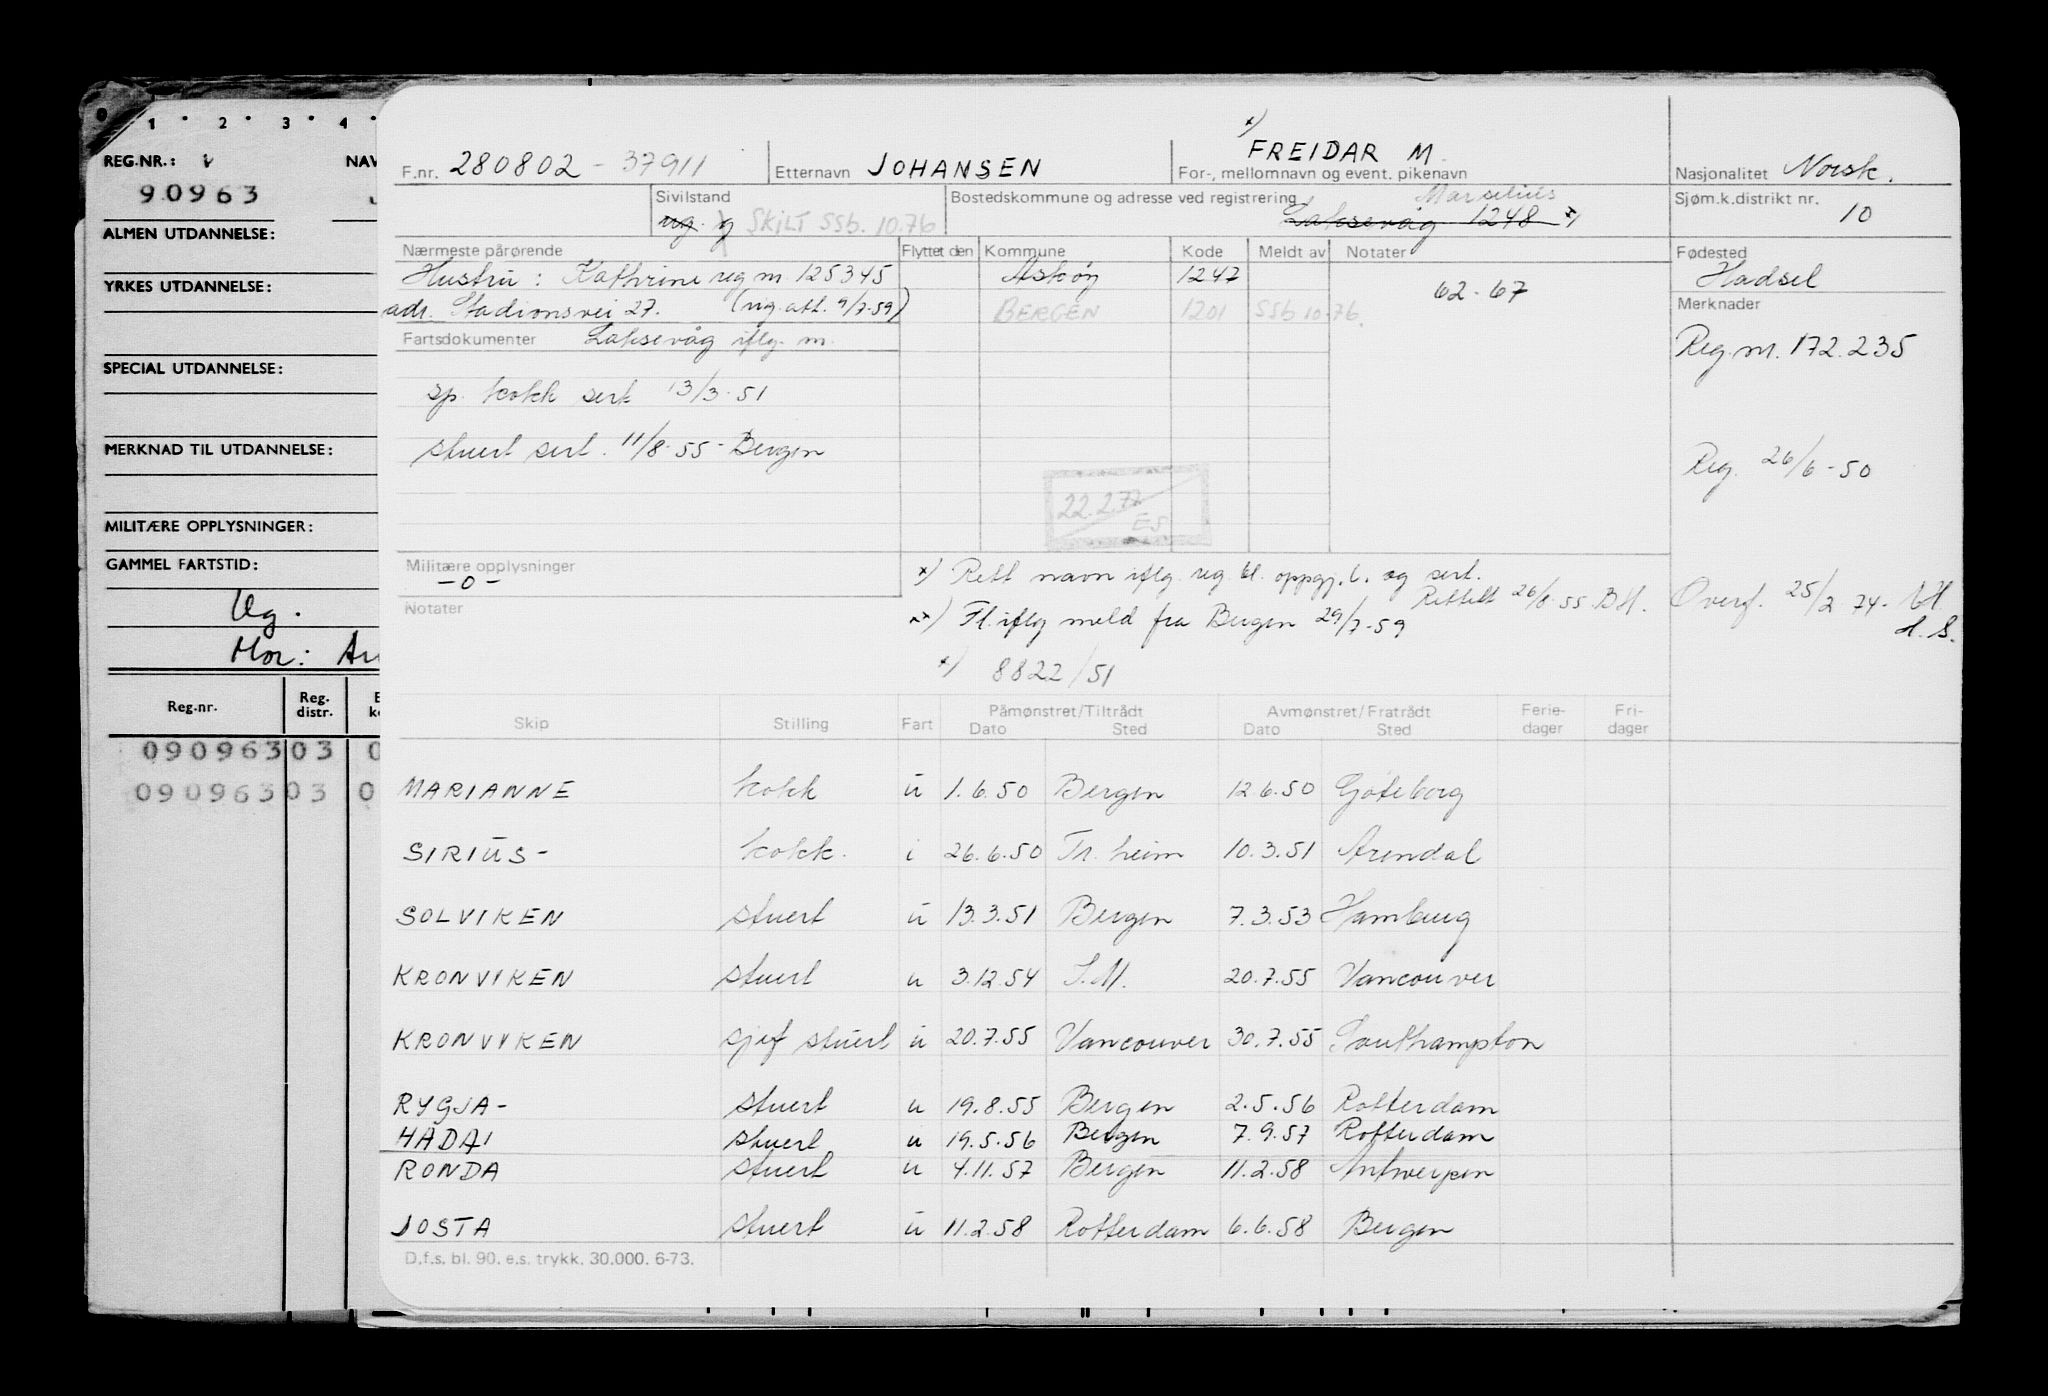 1 · 2 · 3 · 4 ·
REG.NR.:
NAV
90963
ALMEN UTDANNELSE:
YRKES UTDANNELSE:
SPECIAL UTDANNELSE:
MERKNAD TIL UTDANNELSE:
MILITÆRE OPPLYSNINGER:
GAMMEL FARTSTID:
Ug.
Mor:
Reg.nr. Reg. distr.
090963 03 0
090963 03 0
F.nr. 280802 - 37911
Etternavn JOHANSEN
x) FREIDAR M.
For-, mellomnavn og event. pikenavn
Marselius
Nasjonalitet Norsk.
Sivilstand
ug. g SKiLT SSb. 10.76
Bostedskommune og adresse ved registrering
Laksevåg 1248 x)
Sjøm.k.distrikt nr.
10
Nærmeste pårørende
Flyttet den Kommune Kode Meldt av Notater
Fødested
Hustru: Kathrine reg nr. 125345
Askøy 1247
62-67
Hadsel
adr. Stadionsvei 27. (vig.att. 9/7-59)
BERGEN 1201 SSb 10-76.
Merknader
Fartsdokumenter Laksevåg iflg. m.
Reg.nr. 172.235
sp. kokk sert 13/3-51
stuert sert. 11/8-55 - Bergen
Reg. 26/6-50
22.2.77
ES
Militære opplysninger
-0-
x) Rett navn iflg. reg. bl. oppgj.b. og sert.
Rettelt 26/8-55. BH.
Overf. 25/2 74-
H. S.
Notater
xx) Fl. iflg meld fra Bergen 29/7-59
x) 8822/51
Skip Stilling Fart Påmønstret/Tiltrådt Dato Sted Avmønstret/Fratrådt Dato Sted Ferie-dager Fri-dager
MARIANNE kokk u 1.6.50 Bergen 12.6.50 Göteborg
SIRIUS- kokk. i 26.6.50 Tr.heim 10.3.51 Arendal
SOLVIKEN stuert u 13.3.51 Bergen 7.3.53 Hamburg
KRONVIKEN stuert u 3.12.54 20.7.55 Vancouver
KRONVIKEN sjef stuert u 20.7.55 Vancouver 30.7.55 Southampton
RYGJA- stuert u 19.8.55 Bergen 2.5.56 Rotterdam
HADA1 stuert u 19.5.56 Bergen 7.9.57 Rotterdam
RONDA stuert u 4.11.57 Bergen 11.2.58 Antwerpen
JOSTA stuert u 11.2.58 Rotterdam 6.6.58 Bergen
D.f.s. bl. 90. e.s. trykk. 30.000. 6-73.